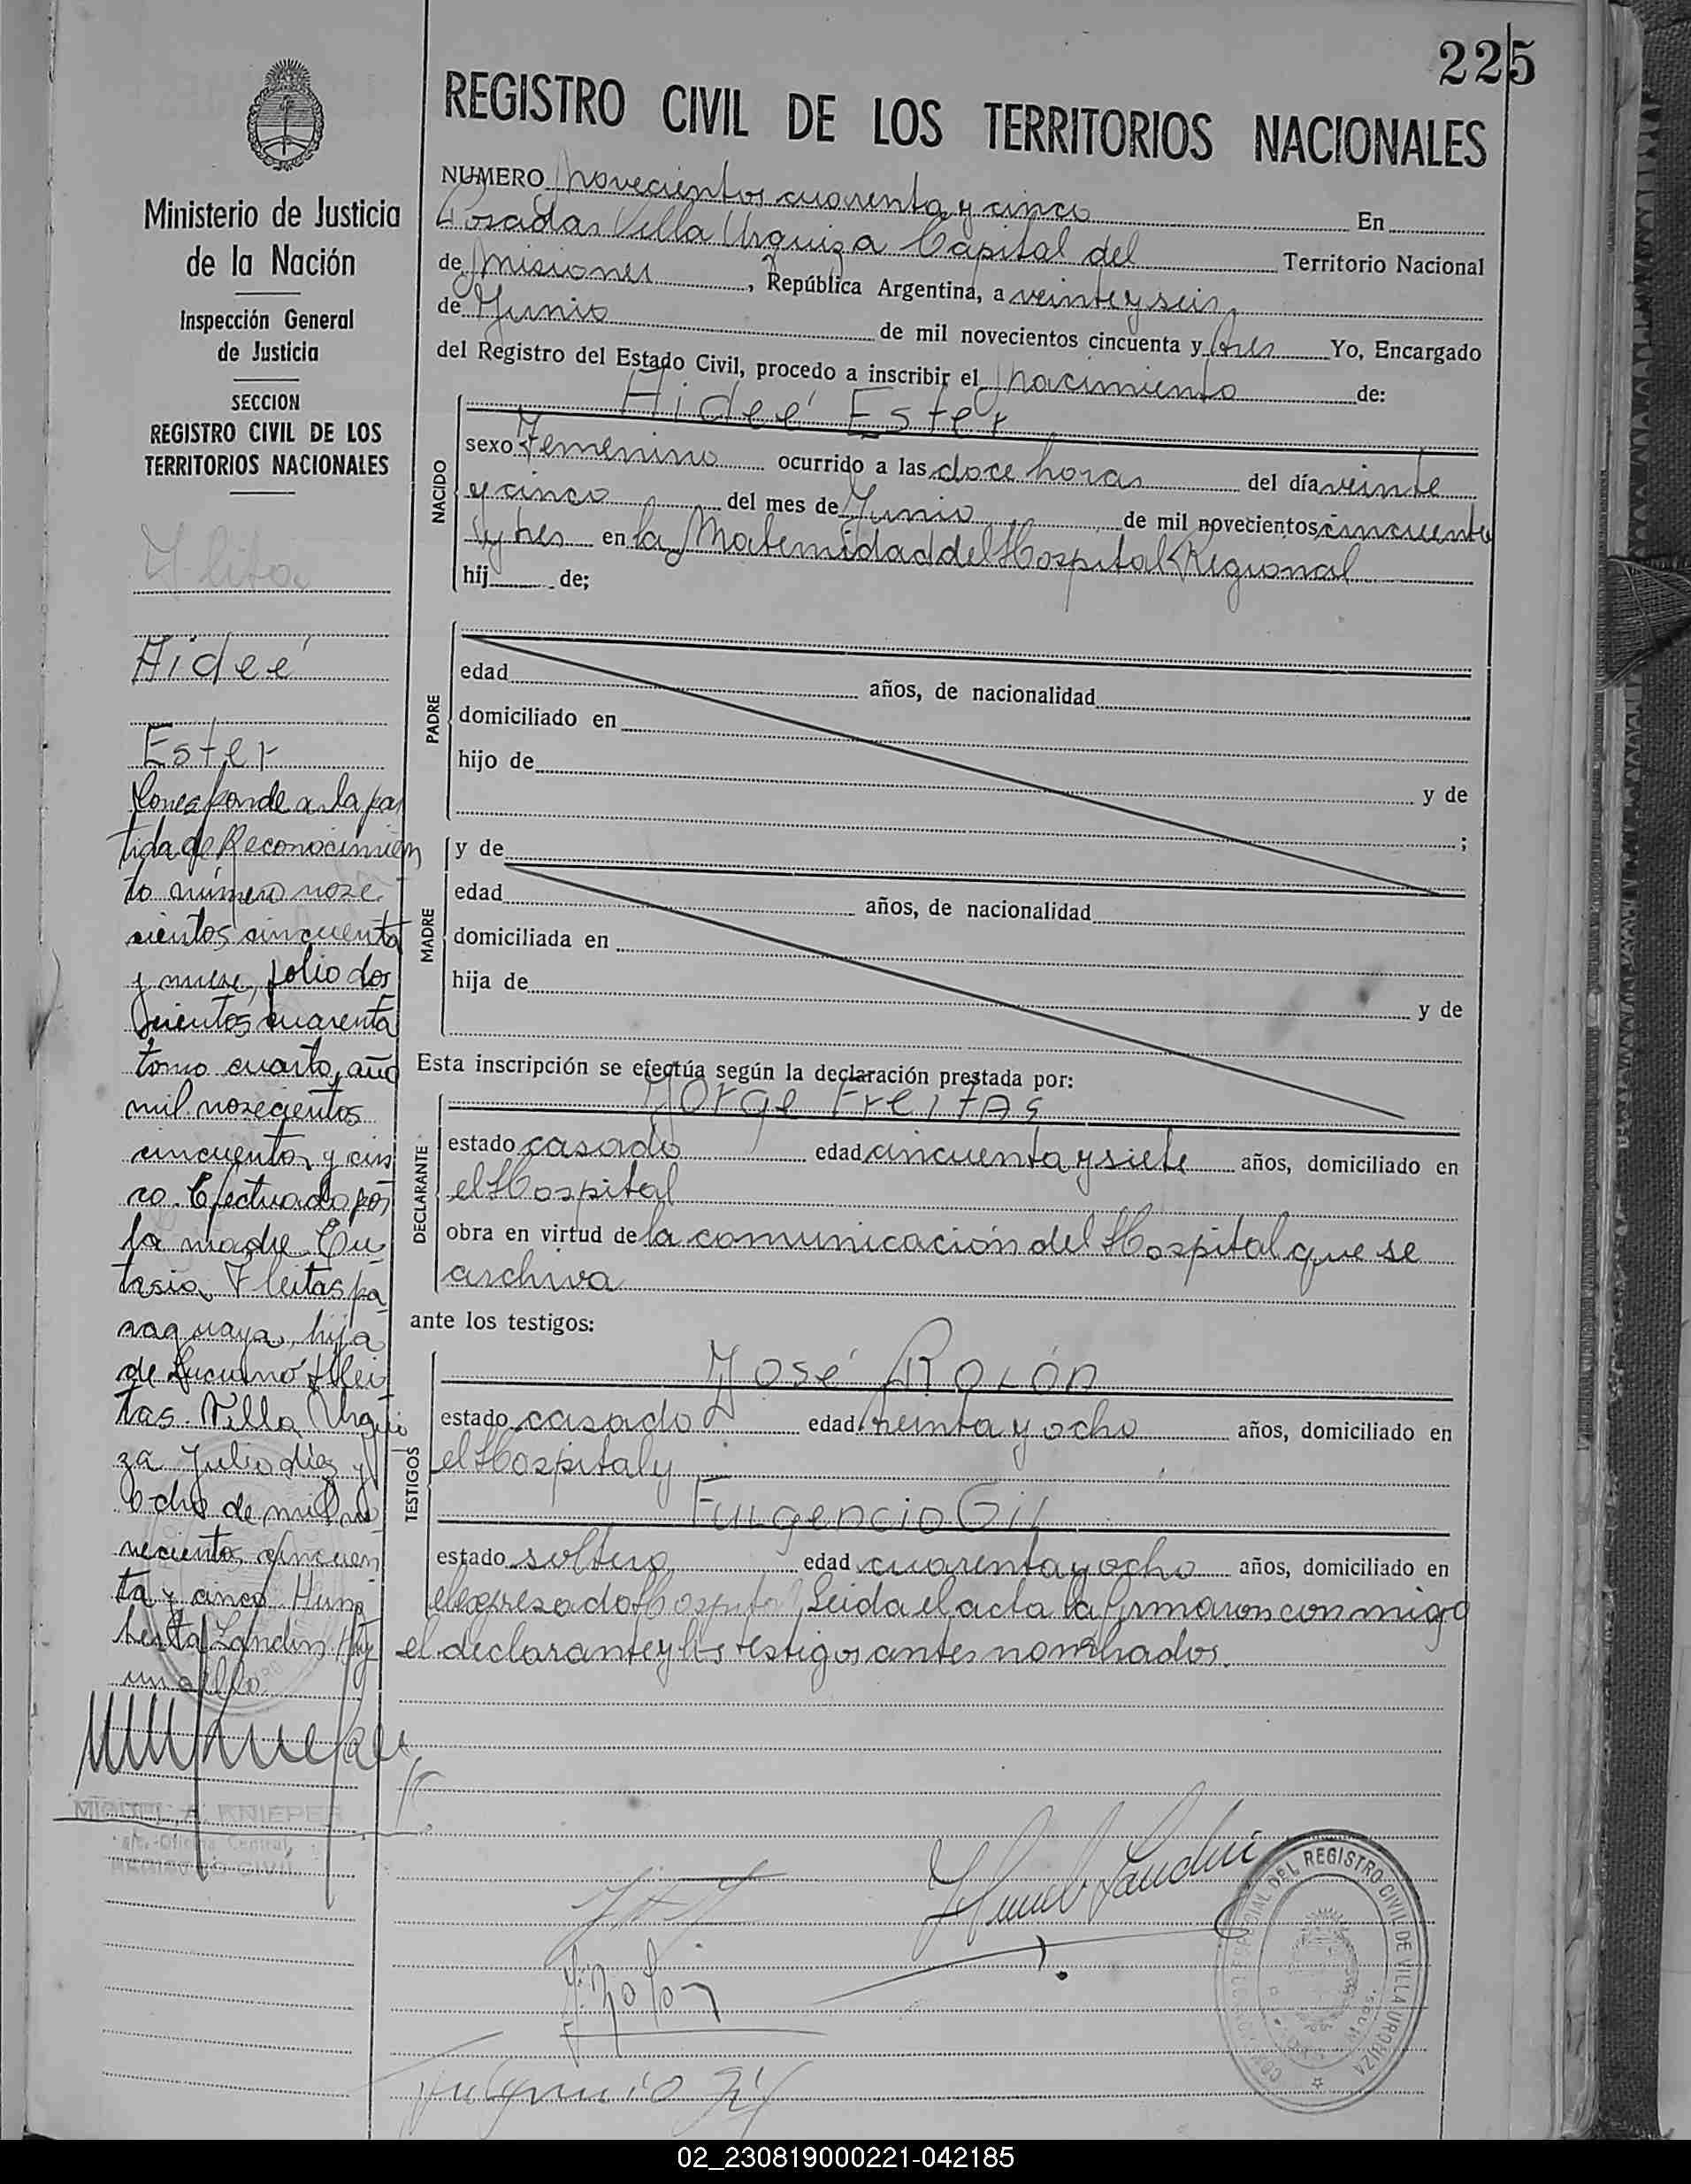 225
REGISTRO CIVIL DE LOS TERRITORIOS NACIONALES
Ministerio de Justicia
de la Nación
Inspección General
de Justicia
SECCION
REGISTRO CIVIL DE LOS
TERRITORIOS NACIONALES
NUMERO novecientos cuarenta y cinco En
Posadas Villa Urquiza Capital del Territorio Nacional
de Misiones, República Argentina, a veinte y seis
de Junio de mil novecientos cincuenta y tres Yo, Encargado
del Registro del Estado Civil, procedo a inscribir el nacimiento de:
NACIDO
Aideé Ester
sexo Femenino ocurrido a las doce horas del día veinte
y cinco del mes de Junio de mil novecientos cincuenta
y tres en la Maternidad del Hospital Regional
hij de;
PADRE
edad años, de nacionalidad
domiciliado en
hijo de
y de
;
MADRE
y de
edad años, de nacionalidad
domiciliada en
hija de
y de
Esta inscripción se efectúa según la declaración prestada por:
DECLARANTE
Jorge Freitas
estado casado edad cincuenta y siete años, domiciliado en
el Hospital
obra en virtud de la comunicación del Hospital que se
archiva
ante los testigos:
TESTIGOS
José Rolón
estado casado edad treinta y ocho años, domiciliado en
el Hospital y
Fulgencio Gil
estado soltero edad cuarenta y ocho años, domiciliado en
el expresado Hospital Leida el acta la firmaron conmigo
el declarante y los testigos antes nombrados.
Aideé
Ester
Corresponde a la par
tida de Reconocimien
to número nove
cientos cincuenta
y nueve, folio dos
cientos cuarenta
tomo cuarto, año
mil novecientos
cincuenta y cin
co. Efectuado por
la madre Eu
tasia Fleitas pa
raguaya, hija
de Luciano Flei
tas. Villa Urqui
za Julio diez y
ocho de mil no
vecientos cincuen
ta y cinco. Hum
berto Landin Hay
un sello
MIGUEL A. KNIEPER
a/c. Oficina Central,
REGISTRO CIVIL
J. Rolón
Fulgencio Gil
DEL REGISTRO CIVIL DE VILLA URQUIZA
02_230819000221-042185